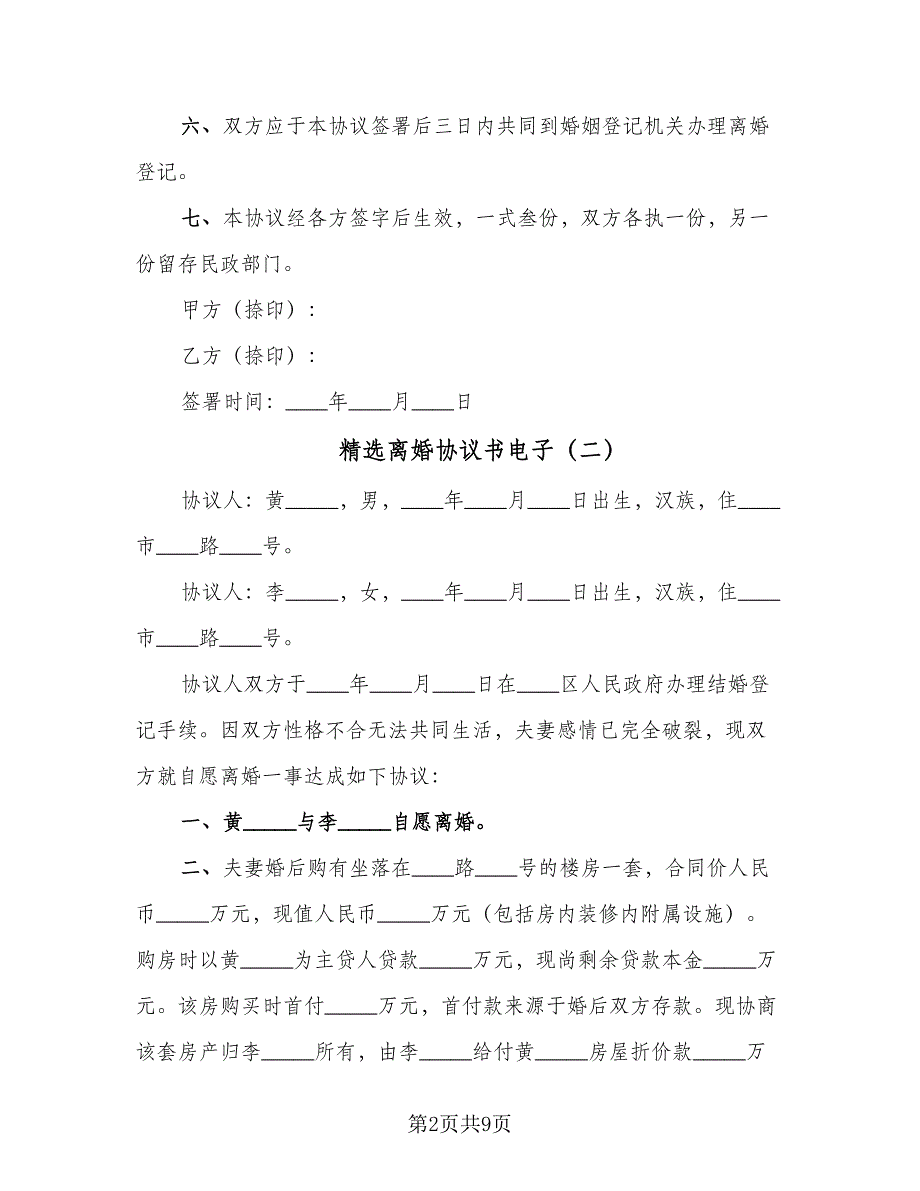 六、双方应于本协议签署后三日内共同到婚姻登记机关办理离婚
登记。
七、本协议经各方签字后生效，一式叁份，双方各执一份，另一
份留存民政部门。
甲方（捺印）：
乙方（捺印）：
签署时间：____年____月____日
精选离婚协议书电子（二）
协议人：黄_____，男，____年____月____日出生，汉族，住____
市____路____号。
协议人：李_____，女，____年____月____日出生，汉族，住____
市____路____号。
协议人双方于____年____月____日在____区人民政府办理结婚登
记手续。因双方性格不合无法共同生活，夫妻感情已完全破裂，现双
方就自愿离婚一事达成如下协议：
一、黄_____与李_____自愿离婚。
二、夫妻婚后购有坐落在____路____号的楼房一套，合同价人民
币_____万元，现值人民币_____万元（包括房内装修内附属设施）。
购房时以黄_____为主贷人贷款_____万元，现尚剩余贷款本金_____万
元。该房购买时首付_____万元，首付款来源于婚后双方存款。现协商
该套房产归李_____所有，由李_____给付黄_____房屋折价款_____万
第2页共9页